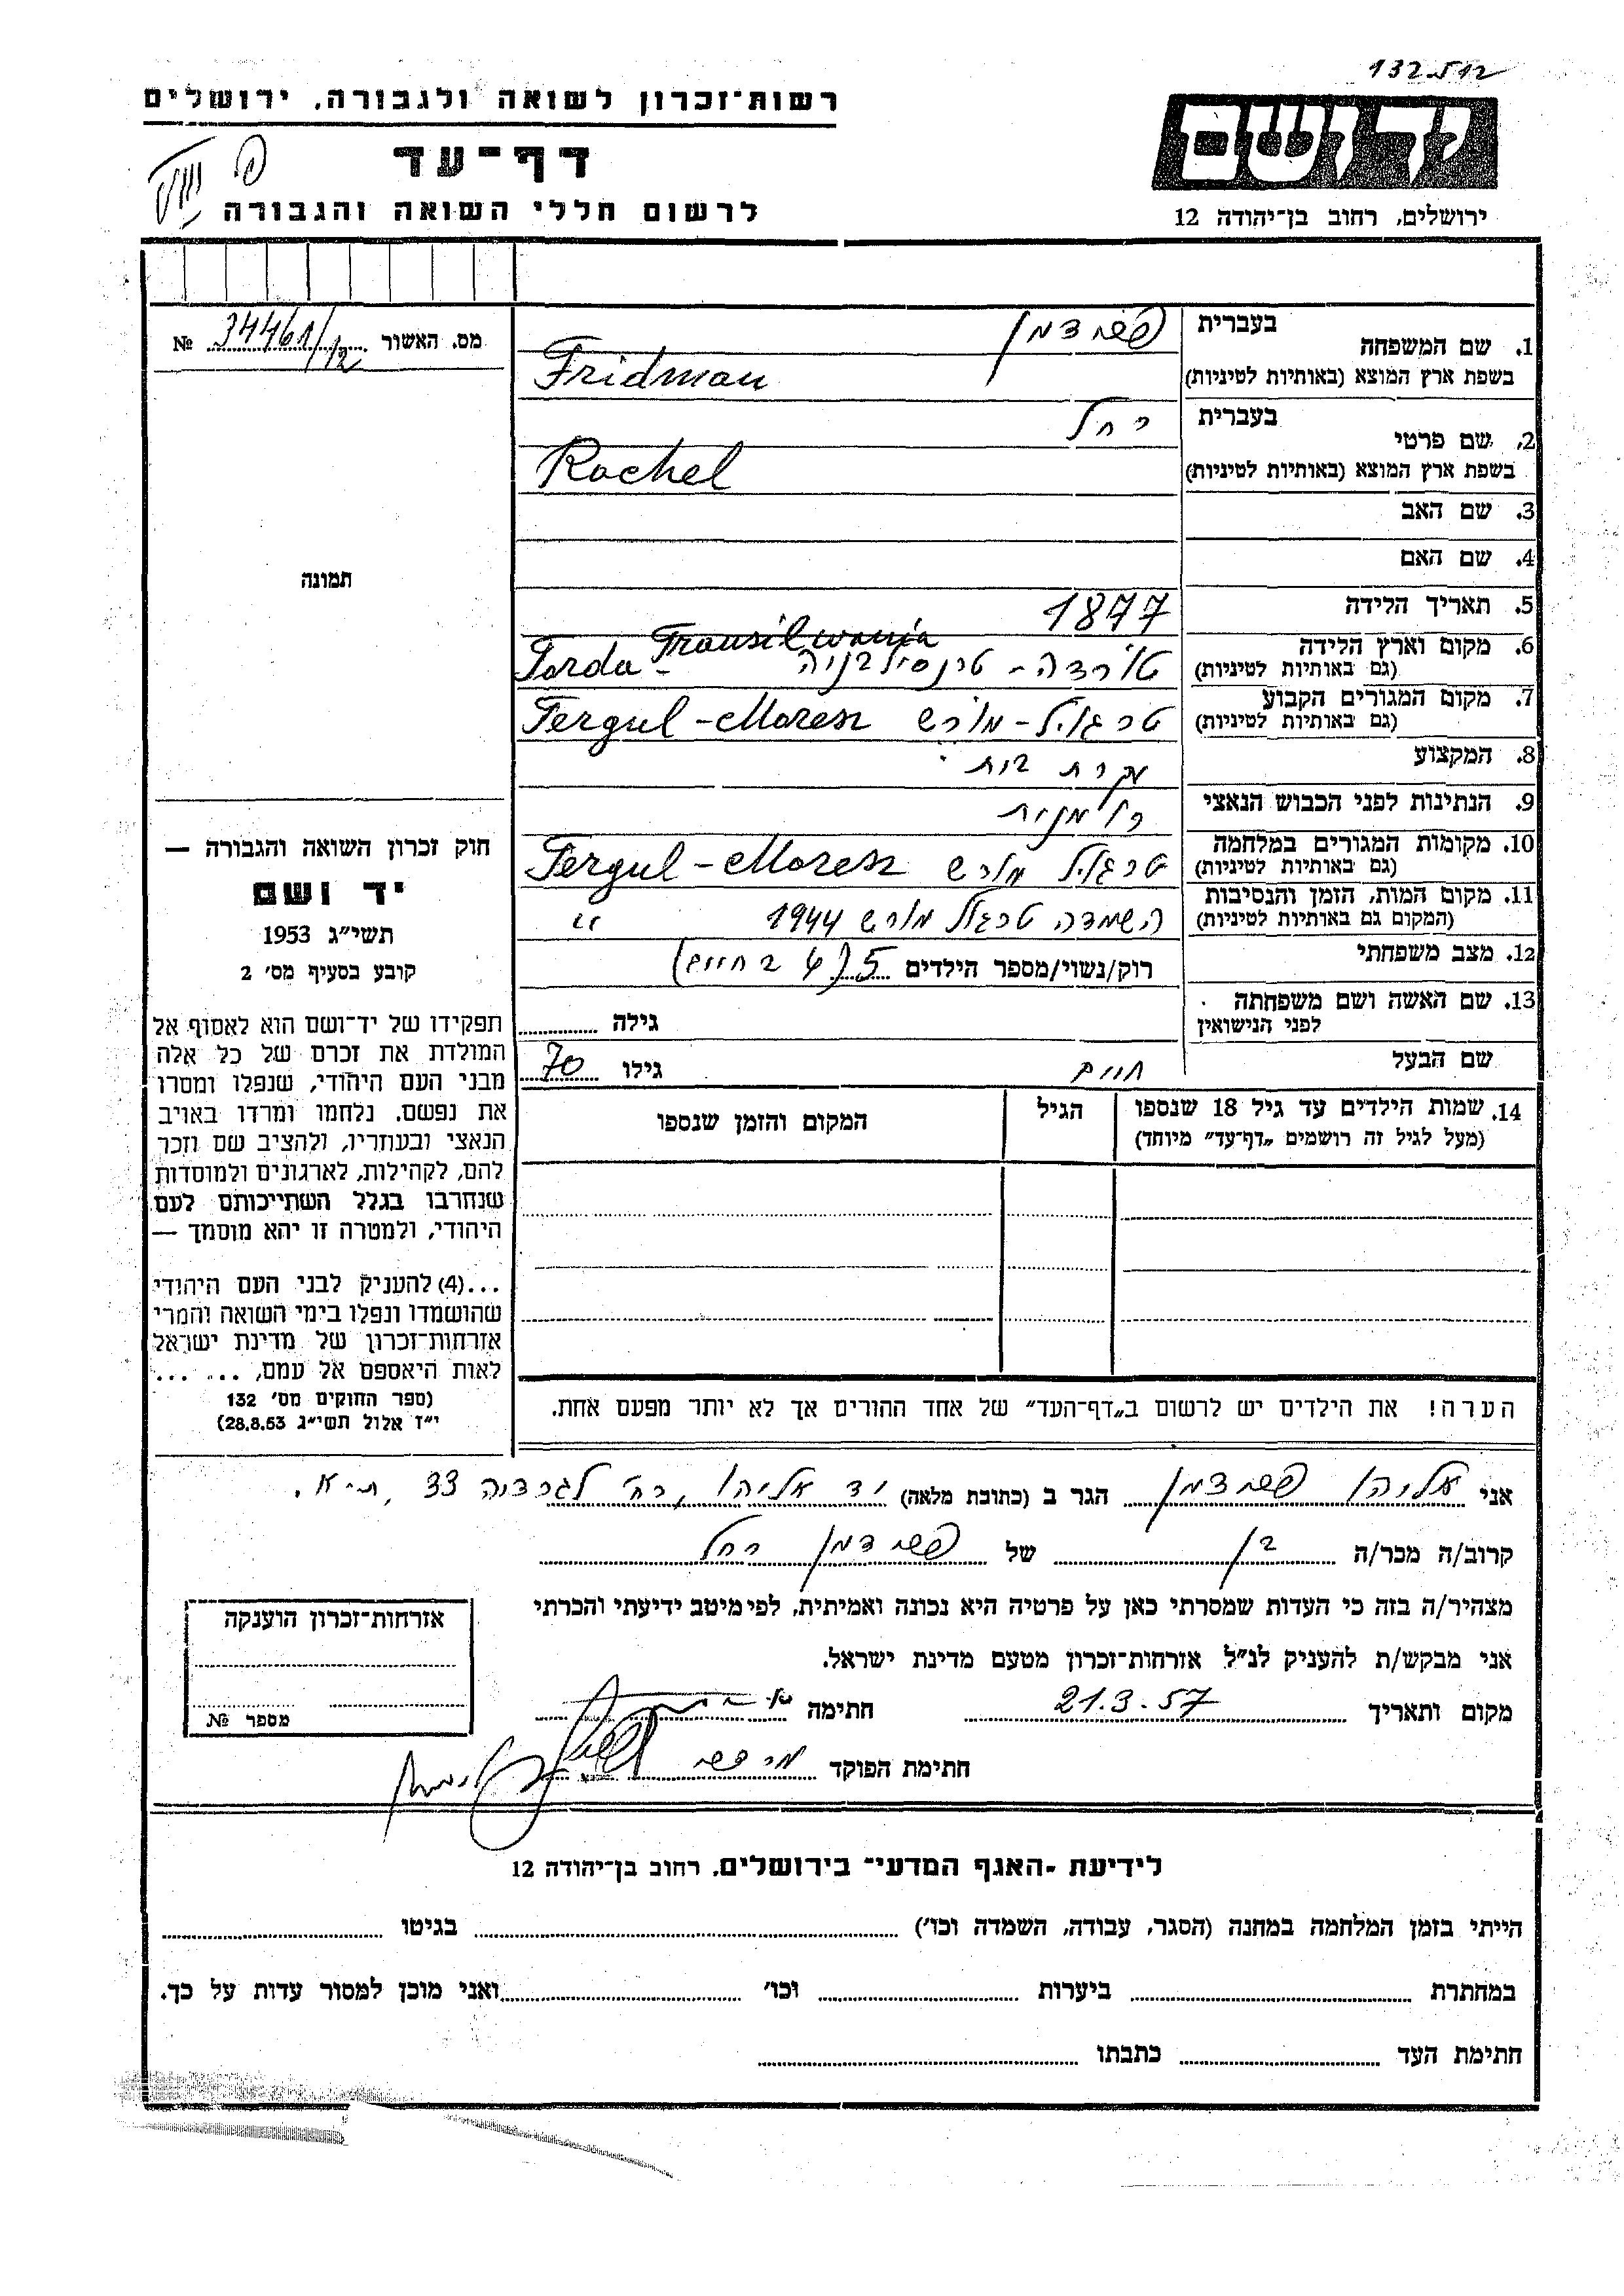 132512
רשות־זכרון לשואה ולגבורה, ירושלים
יד ושם
דף־עד
לרשום חללי השואה והגבורה
ירושלים, רחוב בן־יהודה 12
מס. האשור № 34461/12
1. שם המשפחה
בעברית
פרידמן
בשפת ארץ המוצא (באותיות לטיניות)
Fridman
2. שם פרטי
בעברית
רחל
בשפת ארץ המוצא (באותיות לטיניות)
Rachel
3. שם האב
4. שם האם
תמונה
5. תאריך הלידה 1877
6. מקום וארץ הלידה
(גם באותיות לטיניות)
טורדה - טרנסילבניה Torda - Transilwania
7. מקום המגורים הקבוע
(גם באותיות לטיניות)
טרגול-מורש Tergul-Moresz
8. המקצוע עקרת בית
9. הנתינות לפני הכבוש הנאצי רומנית
10. מקומות המגורים במלחמה
(גם באותיות לטיניות)
טרגול מורש Tergul-Moresz
11. מקום המות, הזמן והנסיבות
(המקום גם באותיות לטיניות)
השמדה טרגול מורש 1944 "
12. מצב משפחתי
רוק/נשוי/מספר הילדים 5 (4 בחיים)
13. שם האשה ושם משפחתה
לפני הנישואין
גילה
שם הבעל חיים גילו 70
14. שמות הילדים עד גיל 18 שנספו
(מעל לגיל זה רושמים „דף־עד" מיוחד)
הגיל
המקום והזמן שנספו
חוק זכרון השואה והגבורה —
יד ושם
תשי"ג 1953
קובע בסעיף מס' 2
תפקידו של יד־ושם הוא לאסוף אל
המולדת את זכרם של כל אלה
מבני העם היהודי, שנפלו ומסרו
את נפשם. נלחמו ומרדו באויב
הנאצי ובעוזריו, ולהציב שם וזכר
להם, לקהילות, לארגונים ולמוסדות
שנחרבו בגלל השתייכותם לעם
היהודי, ולמטרה זו יהא מוסמך —
...(4) להעניק לבני העם היהודי
שהושמדו ונפלו בימי השואה והמרי
אזרחות־זכרון של מדינת ישראל
לאות היאספם אל עמם, ... ...
(ספר החוקים מס' 132
י"ז אלול תשי"ג 28.8.53)
הערה! את הילדים יש לרשום ב„דף־העד" של אחד ההורים אך לא יותר מפעם אחת.
אני אליהו פרידמן הגר ב (כתובת מלאה) יד אליהו, רח' לגרדיה 33, ת-א.
קרוב/ה מכר/ה בן של פרידמן רחל
מצהיר/ה בזה כי העדות שמסרתי כאן על פרטיה היא נכונה ואמיתית, לפי מיטב ידיעתי והכרתי
אני מבקש/ת להעניק לנ"ל אזרחות־זכרון מטעם מדינת ישראל.
מקום ותאריך 21.3.57 חתימה
חתימת הפוקד
אזרחות־זכרון הוענקה
מספר №
לידיעת ־האגף המדעי־ בירושלים, רחוב בן־יהודה 12
הייתי בזמן המלחמה במחנה (הסגר, עבודה, השמדה וכו') בגיטו
במחתרת ביערות וכו' ואני מוכן למסור עדות על כך.
חתימת העד כתבתו